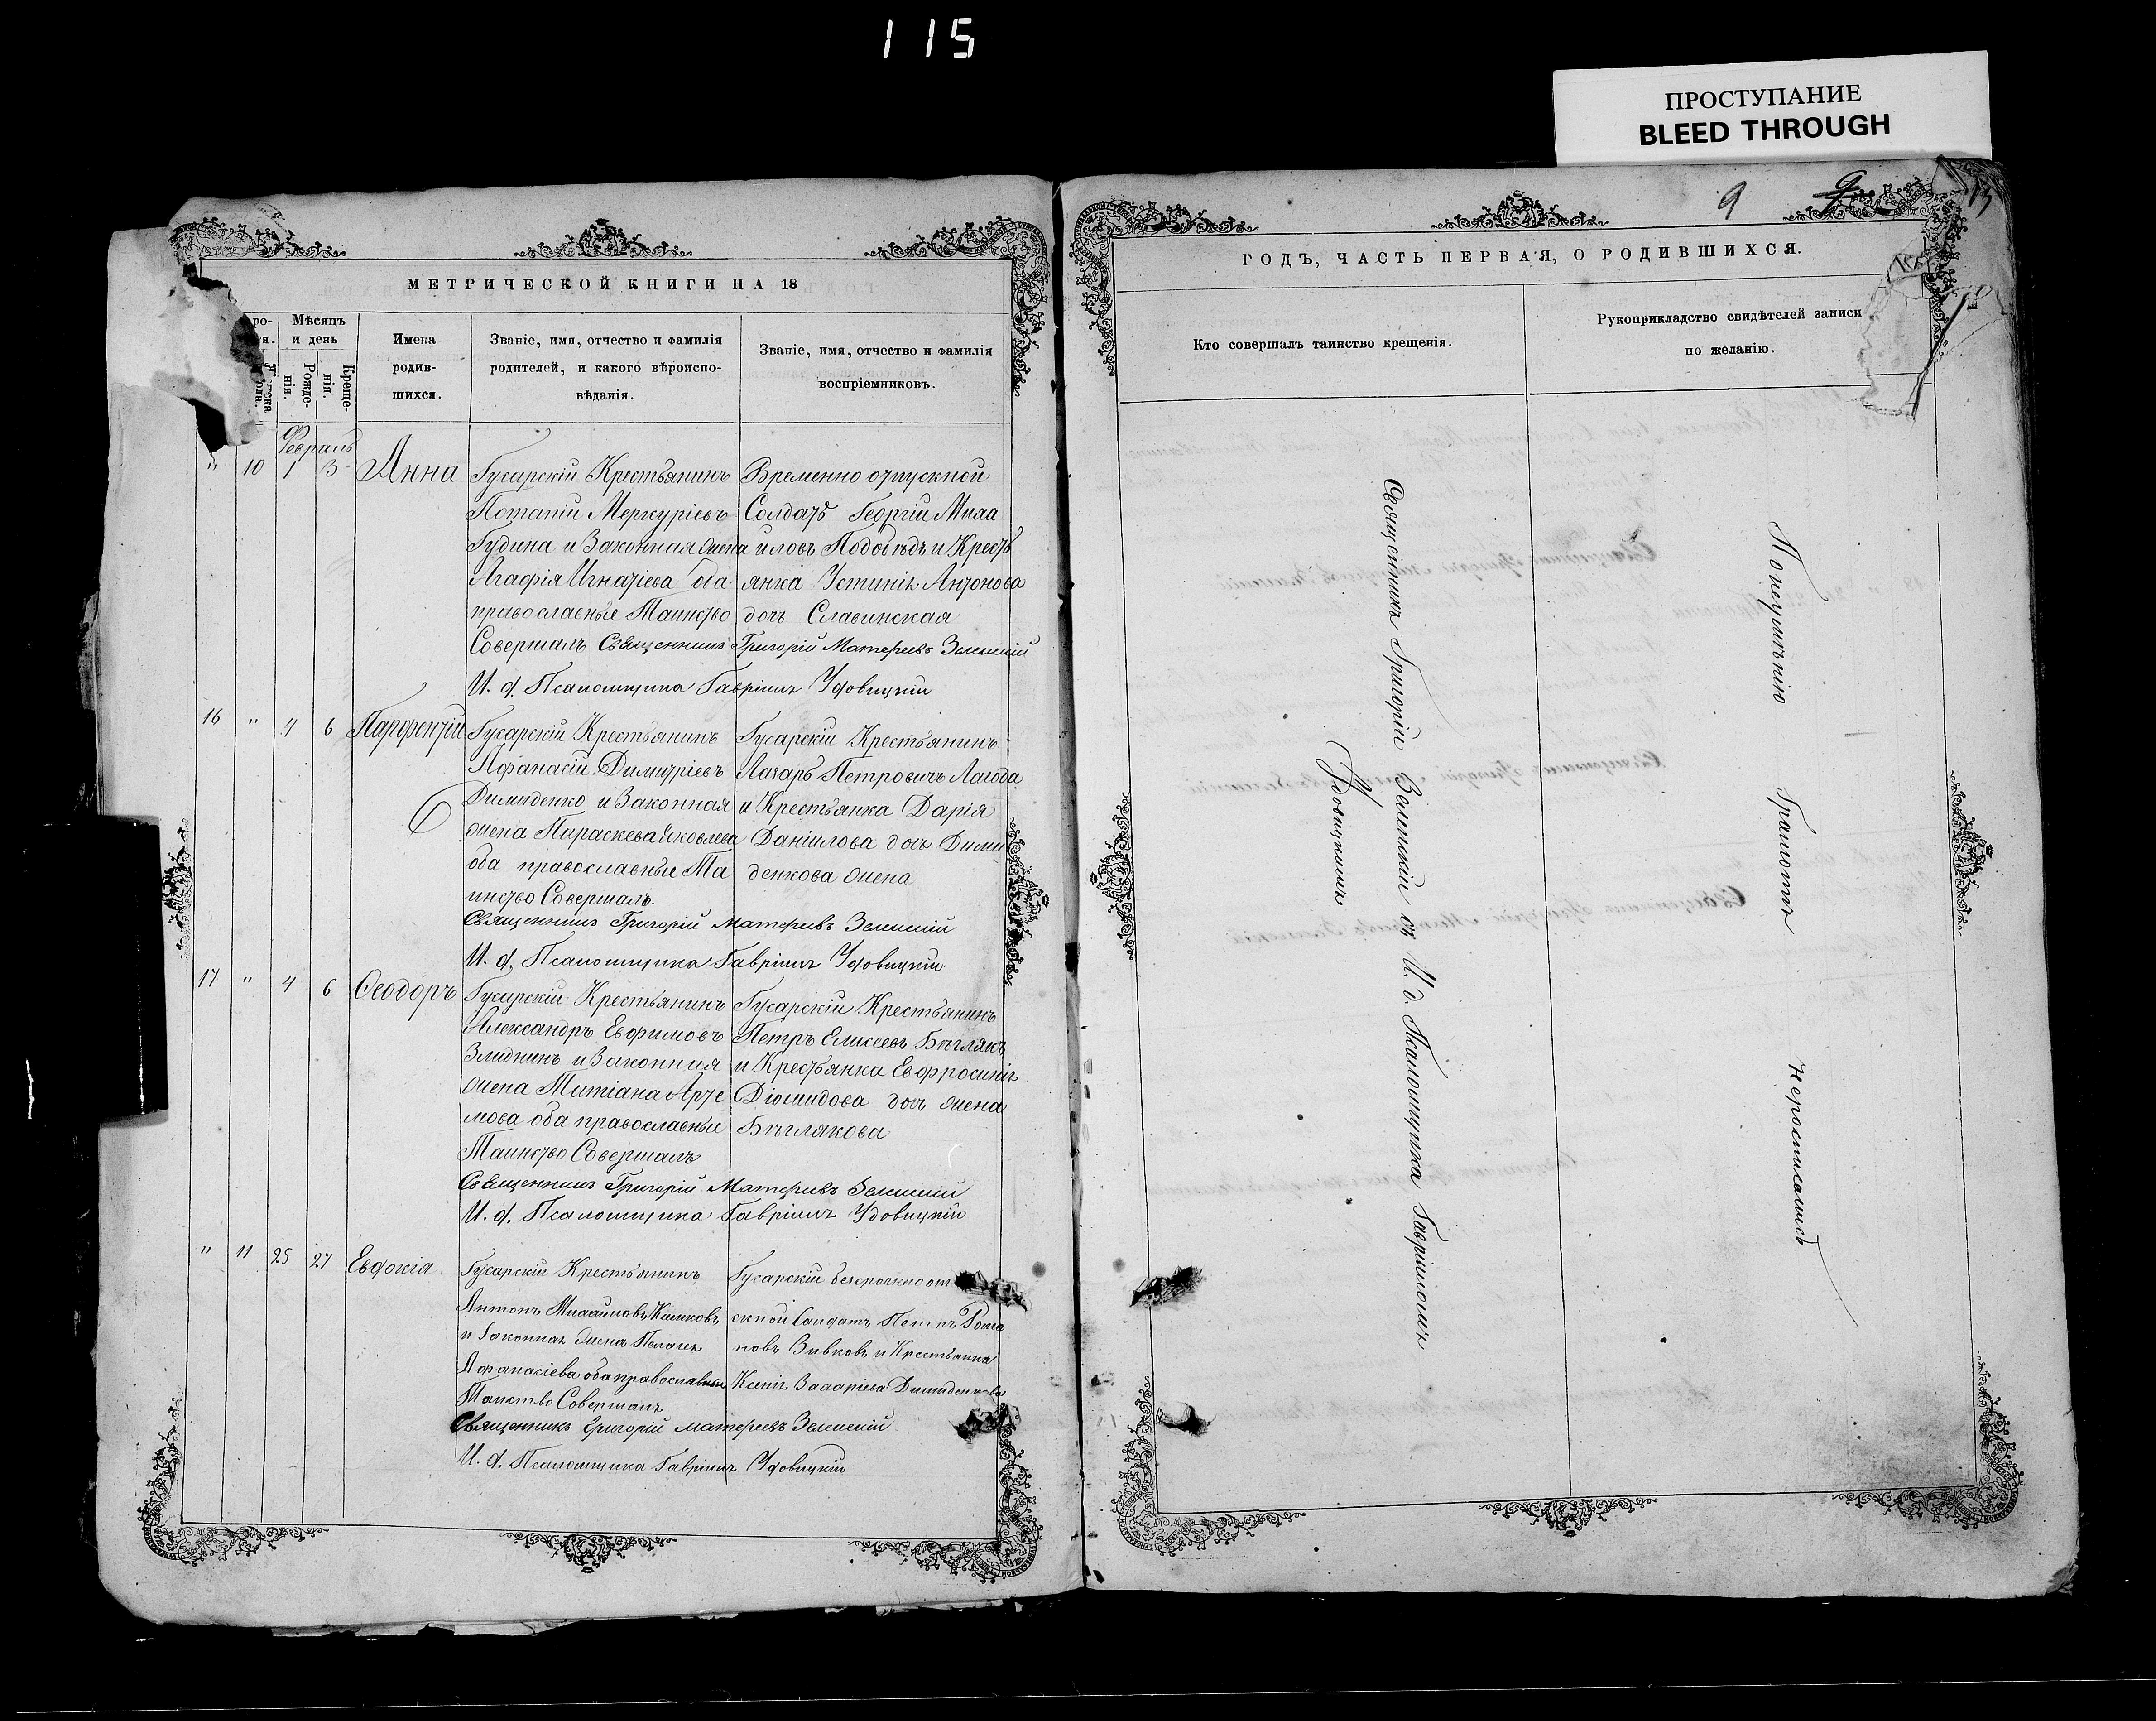 115
ПРОСТУПАНИЕ
BLEED THROUGH
9
МЕТРИЧЕСКОЙ КНИГИ НА 18
Мѣсяцъ и день
Рожде-
нія.
Креще-
нія.
Имена
родив-
шихся.
Званіе, имя, отчество и фамилія
родителей, и какого вѣроиспо-
вѣданія.
Званіе, имя, отчество и фамилія
воспріемниковъ.
Февраль
" 10 1 3 Анна
Гусарскій Крестьянинъ
Потапій Меркуріевъ
Гудина и Законная жена
Агафія Игнатіева оба
православные Таинство
Совершалъ Священникъ Григорій Матфеевъ Зелинскій
И. д. Псаломщика Гавріилъ Удовицкій
Временно отпускной
Солдатъ Георгій Миха
иловъ и Кресть
янка Устинія Антонова
дочь Славинская
16 " 4 6 Парфентій
Гусарскій Крестьянинъ
Афанасій Димитріевъ
Димиденко и Законная
жена Параскева Яковлева
оба православные Та
инство Совершалъ
Священникъ Григорій Матфеевъ Зелинскій
И. д. Псаломщика Гавріилъ Удовицкій
Гусарскій Крестьянинъ
Лазарь Петровичъ Лагода
и Крестьянка Дарія
Даніилова дочь Дими
денкова жена
17 " 4 6 Ѳеодоръ
Гусарскій Крестьянинъ
Александръ Евфимовъ
Злиднинъ и Законная
жена Татіана Арте
мова оба православные
Таинство Совершалъ
Священникъ Григорій Матфеевъ Зелинскій
И. д. Псаломщика Гавріилъ Удовицкій
Гусарскій Крестьянинъ
Петръ Елисеевъ Бѣглякъ
и Крестьянка Евфросинія
Діомидова дочь жена
Бѣглякова
" 11 25 27 Евдокія
Гусарскій Крестьянинъ
Антонъ Михайловъ
и Законная жена
Афанасіева оба православные
Таинство Совершалъ
Священникъ Григорій Матфеевъ Зелинскій
И. д. Псаломщика Гавріилъ Удовицкій
Гусарскій безсрочно от
скной Солдатъ Петръ Рома
новъ и Крестьянка
Ксенія Димиденкова
ГОДЪ, ЧАСТЬ ПЕРВАЯ, О РОДИВШИХСЯ.
Кто совершалъ таинство крещенія.
Рукоприкладство свидѣтелей записи
по желанію.
Священникъ Григорій Зелинскій съ И. д. Псаломщика Гавріиломъ
Удовицкимъ
По неумѣнію Грамотѣ неросписались